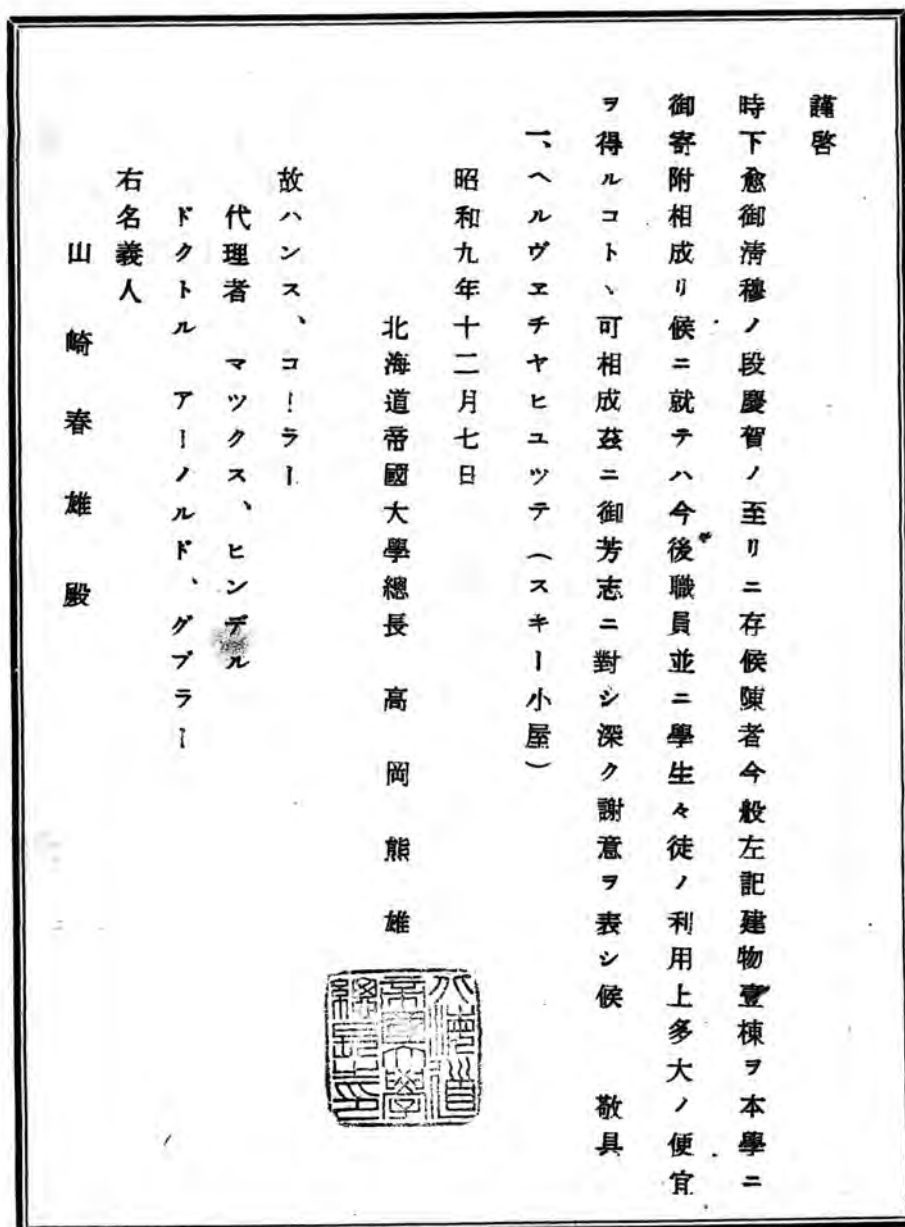 謹啓
時下愈御淸穆ノ段慶賀ノ至リニ存候陳者今般左記建物壹棟ヲ本學ニ
御寄附相成リ候ニ就テハ今後職員並ニ學生々徒ノ利用上多大ノ便宜
ヲ得ルコトヽ可相成玆ニ御芳志ニ對シ深ク謝意ヲ表シ候　敬具
一、ヘルヴエチヤヒユツテ（スキー小屋）
昭和九年十二月七日
北海道帝國大學總長　高岡熊雄
北海道帝國大學總長之印
故ハンス、コーラー
代理者　マツクス、ヒンデル
ドクトル　アーノルド、グブラー
右名義人
山崎春雄殿